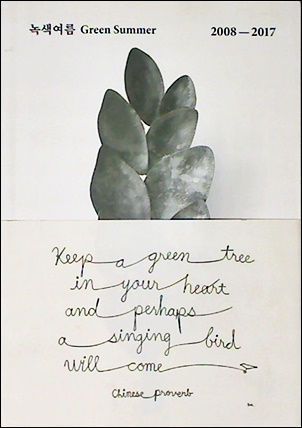 녹색여름 Green Summer 2008 — 2017
Keep a green tree
in your heart
and perhaps
a singing bird
will come
Chinese proverb